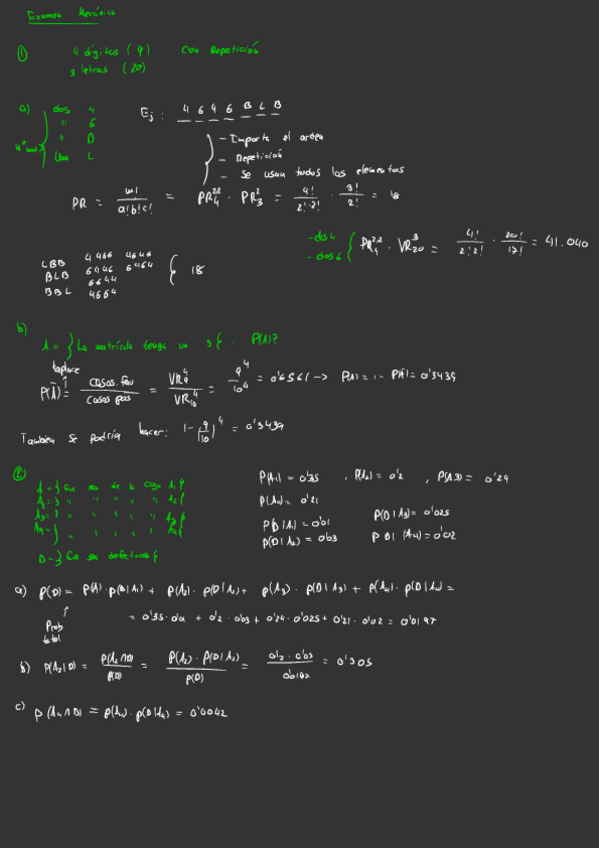 Examen Mecánica
① 4 dígitos (9) Con Repetición
3 letras (20)
a) dos 4
" 6
" B
Una L
Ej: 4 6 4 6 B L B
- Importa el orden
- Repetición
- Se usan todos los elementos
PR = m!/(a!b!c!) = PR₄^2,2 · PR₃^2 = 4!/(2!·2!) · 3!/2! = 18
- dos 4
- dos 6
PR₄^2,2 · VR₂₀^3 = 4!/(2!2!) · 20!/17! = 41.040
LBB 4466 4646
BLB 6446 6464
BBL 6644
4664
18
b)
A = { La matrícula tenga un 3 } : P(A)?
Laplace
P(Ā) = casos fav/casos pos = VR₉^4/VR₁₀^4 = 9^4/10^4 = 0'6561 → P(A) = 1 - P(Ā) = 0'3439
También se podría hacer: 1 - (9/10)^4 = 0'3439
②
A₁ = { Que sea de la caja A₁ }
A₂ = { " " " " " A₂ }
A₃ = { " " " " " A₃ }
A₄ = { " " " " " A₄ }
D = { Que sea defectuosa }
P(A₁) = 0'35 , P(A₂) = 0'2 , P(A3) = 0'24
P(A₄) = 0'21
P(D|A₁) = 0'01 P(D|A₃) = 0'025
P(D|A₂) = 0'03 P(D|A₄) = 0'02
a) P(D) = P(A₁) · P(D|A₁) + P(A₂) · P(D|A₂) + P(A₃) · P(D|A₃) + P(A₄) · P(D|A₄) =
Prob total
= 0'35 · 0'01 + 0'2 · 0'03 + 0'24 · 0'025 + 0'21 · 0'02 = 0'0197
b) P(A₂|D) = P(A₂∩D)/P(D) = P(A₂) · P(D|A₂)/P(D) = 0'2 · 0'03/0'0197 = 0'305
c) P(A₄∩D) = P(A₄) · P(D|A₄) = 0'0042